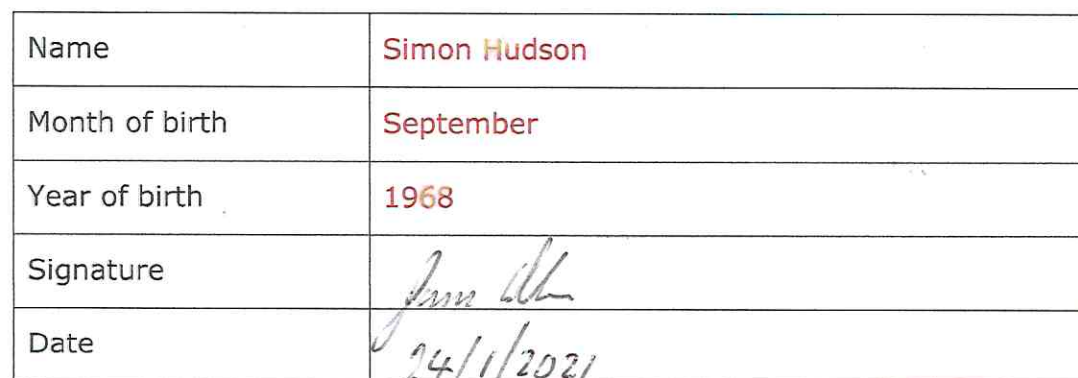 Name Simon Hudson
Month of birth September
Year of birth 1968
Signature
Date 24/1/2021